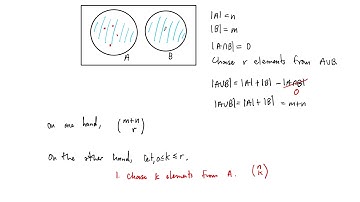 |A| = n
|B| = m
|A∩B| = 0
Choose r elements from A∪B.
A
B
|A∪B| = |A| + |B| - |A∩B|
0
|A∪B| = |A| + |B| = m+n
on one hand, (m+n r)
On the other hand, let, 0≤k≤r,
1. Choose k elements from A. (n k)